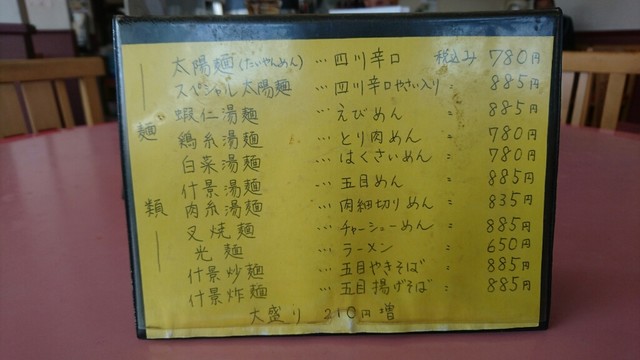 太陽麺(たいやんめん)…四川辛口 税込み 780円
スペシャル太陽麺 …四川辛口やさい入り 〃 885円
蝦仁湯麺 …えびめん 〃 885円
鶏糸湯麺 …とり肉めん 〃 780円
白菜湯麺 …はくさいめん 〃 780円
什景湯麺 …五目めん 〃 885円
肉糸湯麺 …肉細切りめん 〃 835円
叉焼麺 …チャーシューめん 〃 885円
光麺 …ラーメン 〃 650円
什景炒麺 …五目やきそば 〃 885円
什景炸麺 …五目揚げそば 〃 885円
大盛り 210円増
麺類